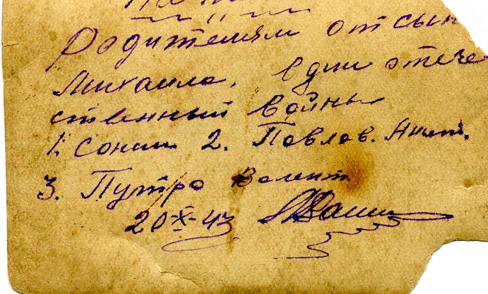 Родителям от сын
Михаила, в дни отече
ственный войны
1. Сонин 2. Павлов. Анат.
3. Путро Валент
20-X-43